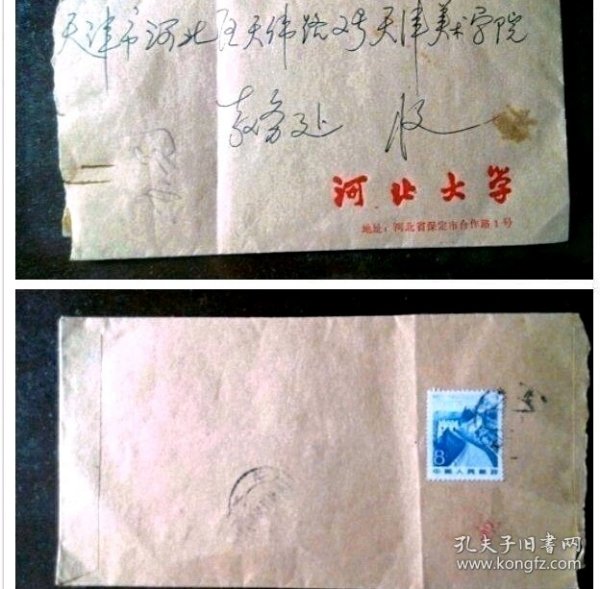 天津市河北区天纬路4号天津美术学院
教务处 收
河北大学
地址：河北省保定市合作路1号
8
中国人民邮政
孔夫子旧书网
www.kongfz.com